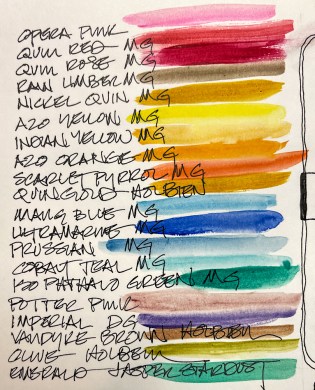 OPERA PINK
QUIN RED MG
QUIN ROSE MG
RAW UMBER MG
NICKEL QUIN MG
AZO YELLOW MG
INDIAN YELLOW MG
AZO ORANGE MG
SCARLET PYRROL MG
QUIN GOLD HOLBIEN
MANG BLUE MG
ULTRAMARINE MG
PRUSSIAN MG
COBALT TEAL MG
PHTHALO GREEN MG
POTTER PINK
IMPERIAL DG
VANDYKE BROWN HOLBEIN
OLIVE HOLBEIN
EMERALD JASPER STARDUST